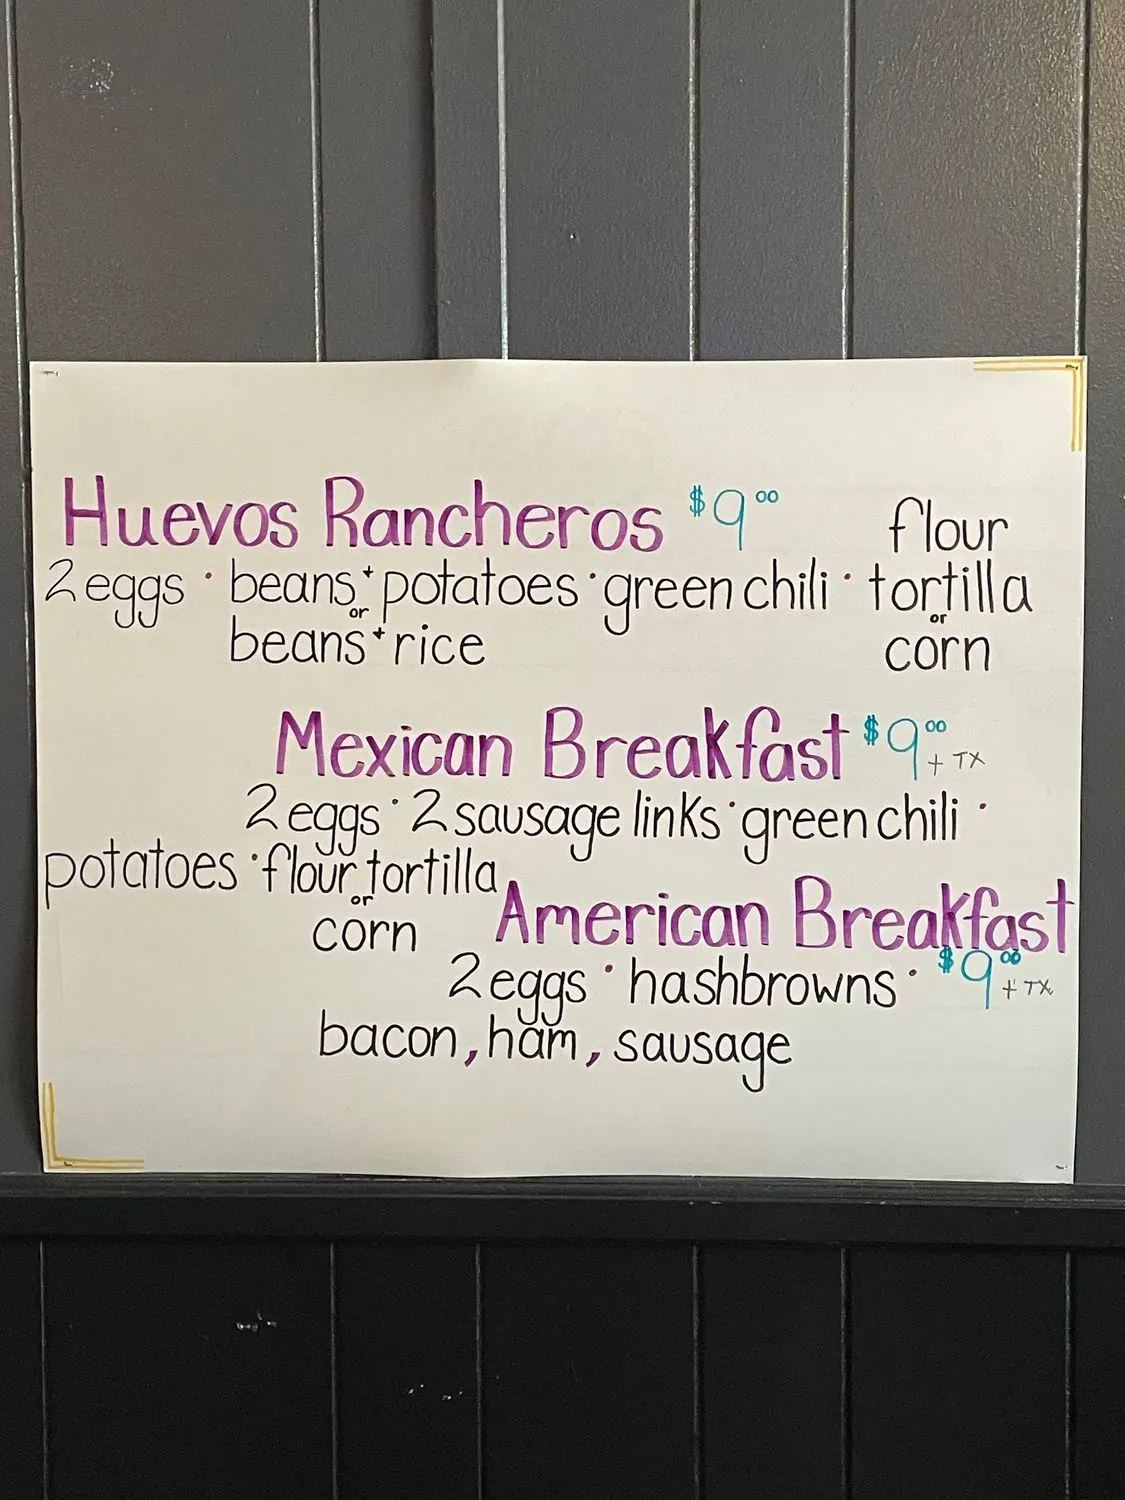 Huevos Rancheros $9.00
flour
2 eggs · beans + potatoes · green chili · tortilla
or
or
beans + rice
corn
Mexican Breakfast $9.00
+ TX
2 eggs · 2 sausage links · green chili ·
potatoes · flour tortilla
or
corn
American Breakfast
$9.00 + TX
2 eggs · hashbrowns ·
bacon, ham, sausage